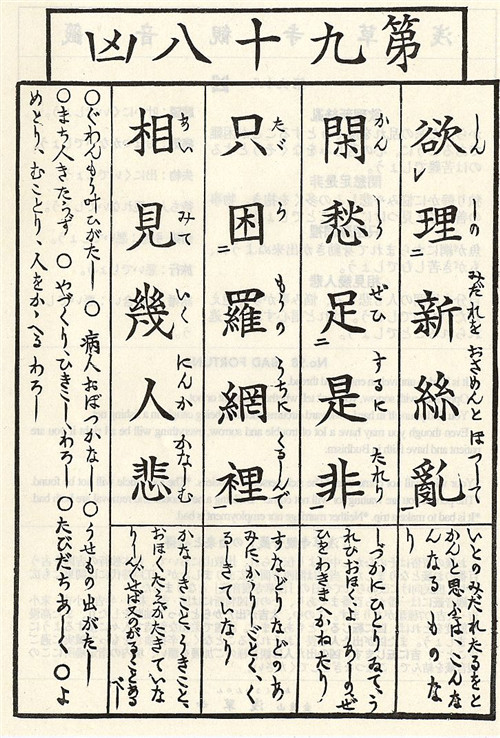 第九十八凶
欲レ理二新絲亂
しんしの みだれをおさめんと ほつして
いとのみだれたるをと
かんと思ふは、こんな
んなるものな
り
閑愁足二是非
かんしう ぜひ するに たれり
しづかにひとりゐて、う
れひおほく、よしあしのぜ
ひをわきまへかねたり
只困二羅網裡
たゞ らもうの うちに くるしんで
すなどりなどのあ
みにかゝり
るしきていなり
相見幾人悲
あい みて いく にんか かなしむ
かなしきこと、くるしきこと、
おほくたえがたきていな
○ぐわんもう叶ひがたし ○病人おぼつかなし ○うせもの出がたし
○まち人きたらず ○やづくり、ひきこしわろし ○たびだちあしく ○よ
めとり、むことり、人をかゝへるわろし